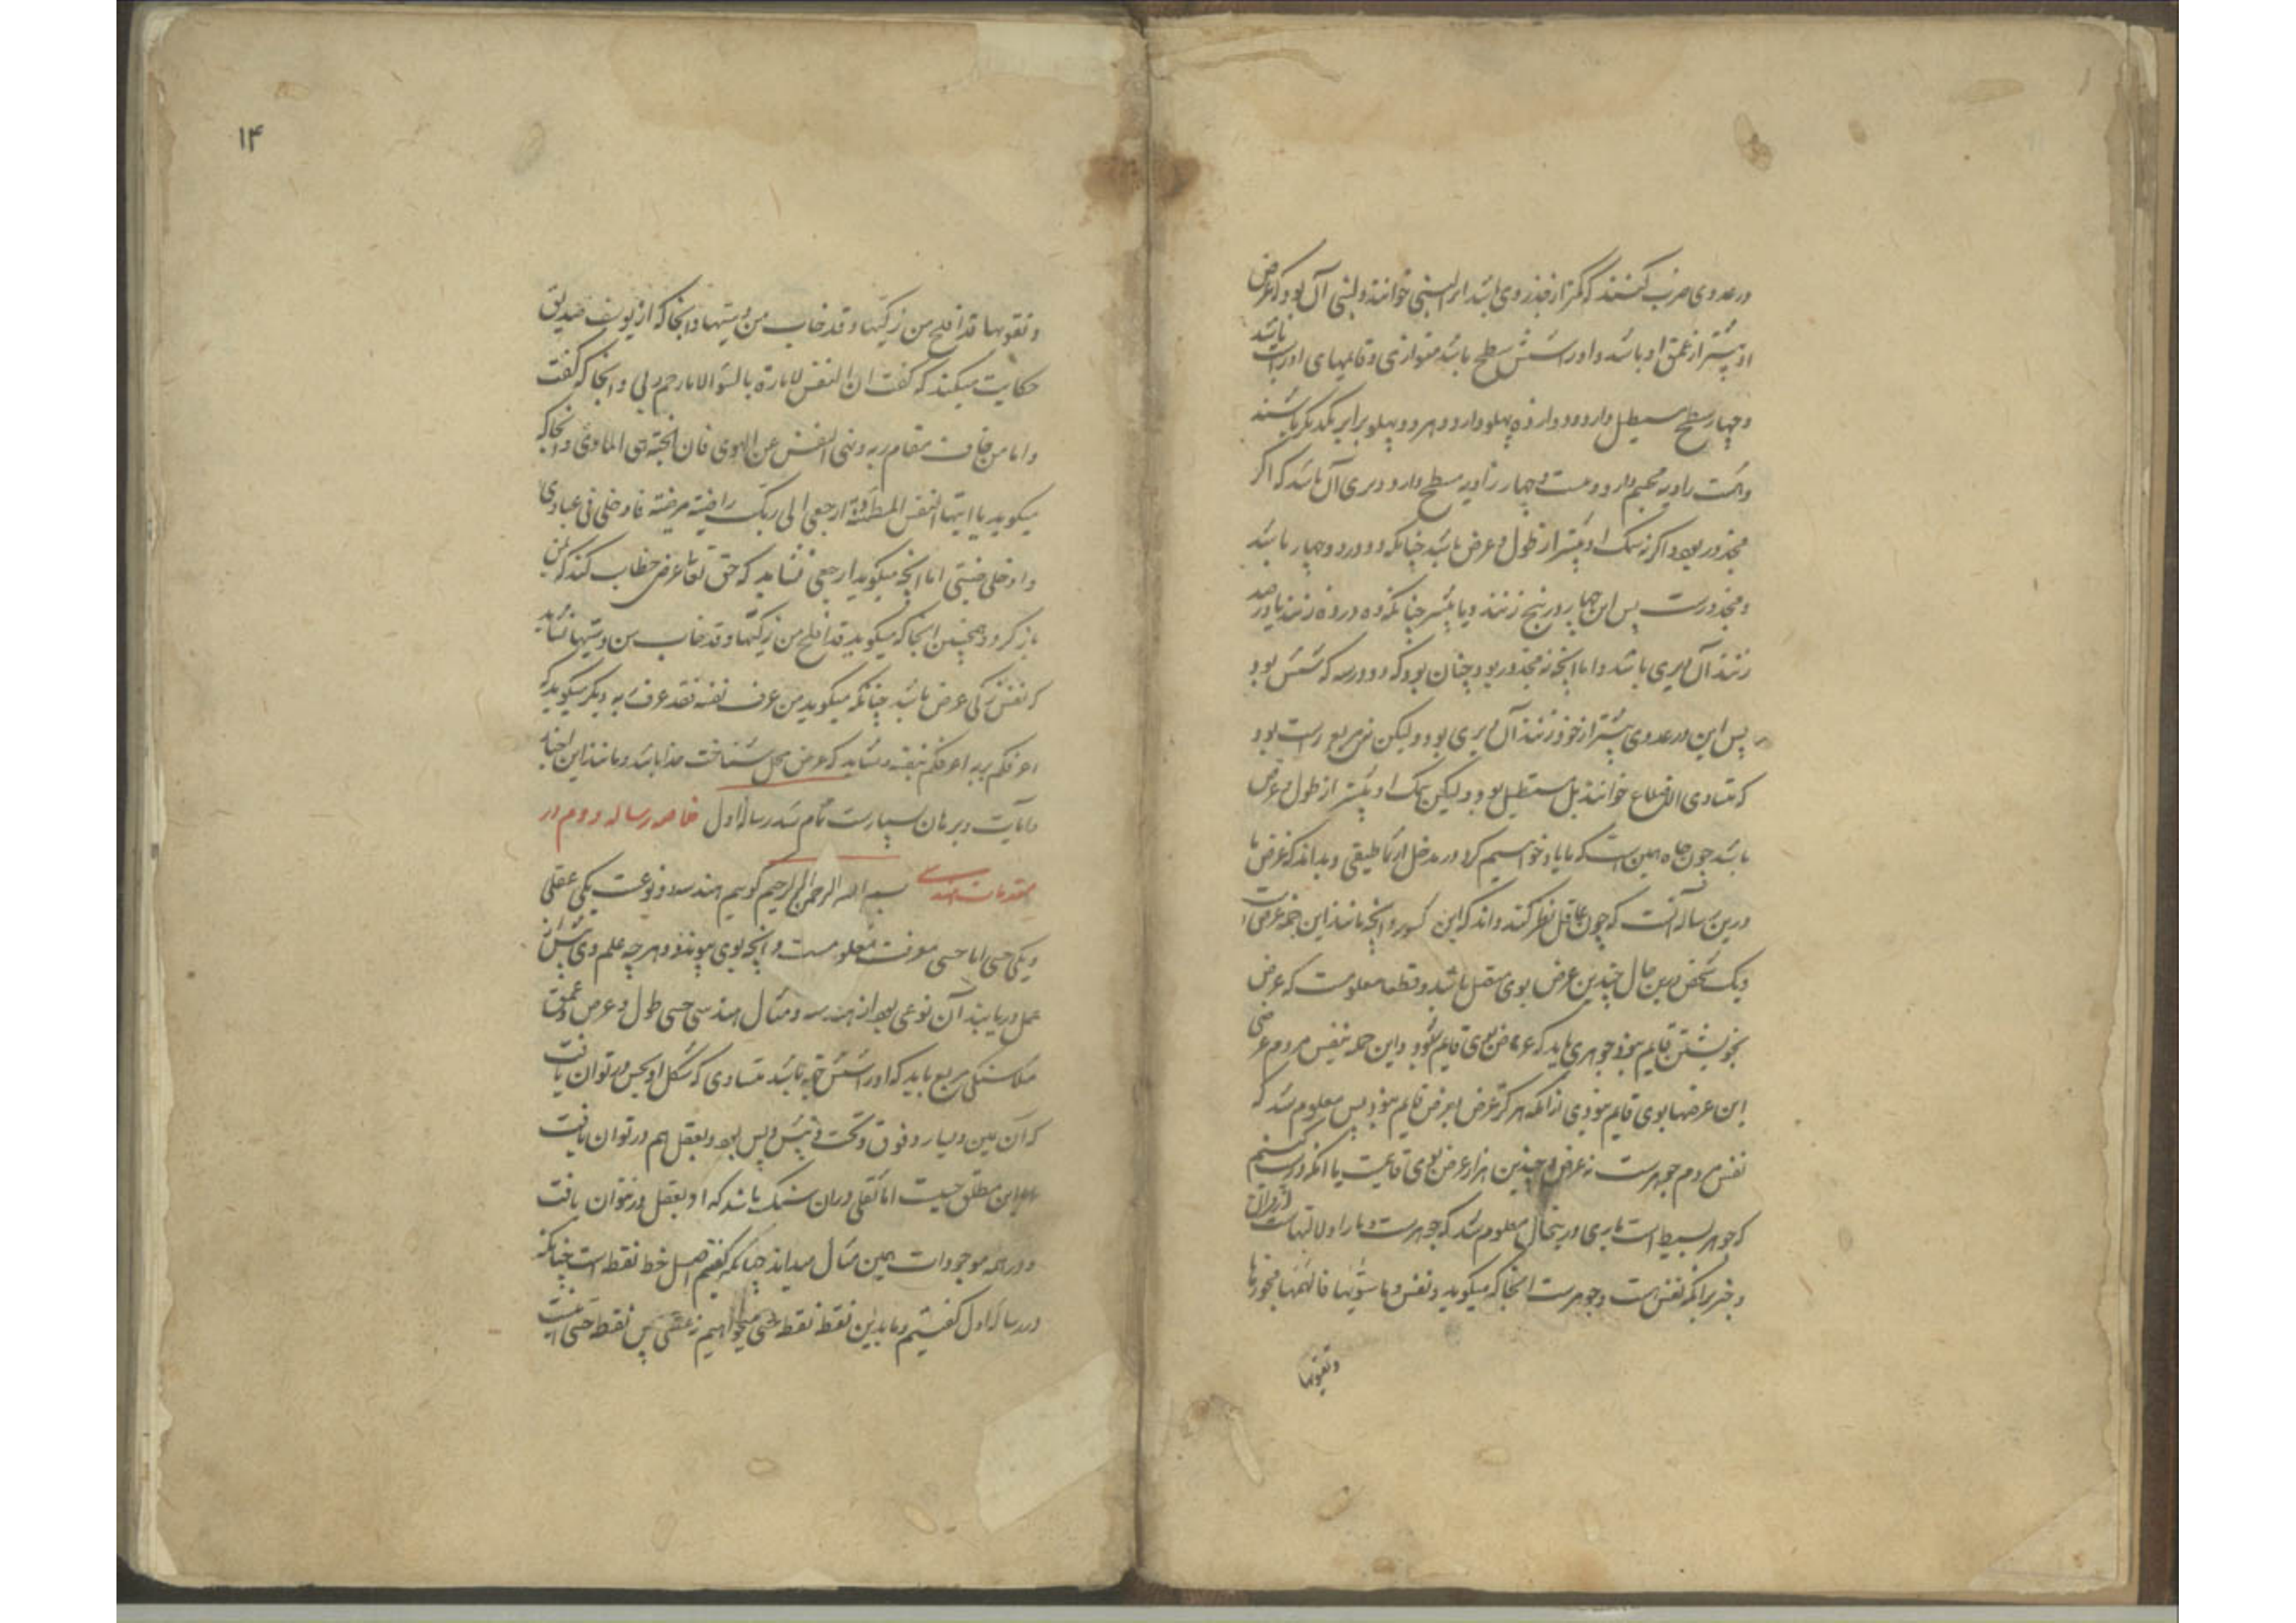 در عددی ضرب کنند که کمتر از جذر وی باشد آنرا لبنی خوانند و لبنی آن بود که عرض
او بیشتر از عمق او باشد و او را شش سطح باشد متوازی و قایمهای او راست باشد
و چهار سطح مستطیل دارد و دوازده پهلو دارد و هر دو پهلو برابر یکدیگر باشند
و هشت زاویه مجسم دارد و بیست و چهار زاویه سطح دارد و بیری آن باشد که اگر
مجذور بود و اگر نه سمک او بیشتر از طول و عرض باشد چنانکه دو در دو چهار باشد
و مجذورست پس این چهار در پنج زنند و یا بیشتر چنانکه ده در ده زنند یا در صد
زنند آن بیری باشد و اما آنچه نه مجذور بود چنان بود که دو در سه که شش بود
پس این در عددی بیشتر از خود زنند آن بیری بود و لیکن نه مربع راست بود
که متساوی الاضلاع خوانند بل مستطیل بود و لیکن سمک او بیشتر از طول و عرض
باشد چون چاه همین است که ما یاد خواستیم کرد در مدخل ارثماطیقی و بداند که غرض ما
درین رساله آنست که چون عاقل نظر کند داند که این کسور و آنچه مانند این جمله عرضی است
و یک شخص بدین حال چندین عرض بوی متصل باشد و قطعا معلومست که عرض
بخویشتن قایم نبود جوهری باید که عرض بوی قایم شود و این جمله بنفس مردم عرضی
این عرضها بوی قایم نبودی از آنکه هرگز عرض بعرض قایم نبود پس معلوم شد که
نفس مردم جوهرست نه عرض و چندین هزار عرض بوی قایمست یا آنکه درست کنیم
که جوهر بسیط است باری درین حال معلوم شد که جوهرست و ما را دلالتهاست از قرآن
و خبر بر آنکه نفس هست و جوهرست آنجا که میگوید و نفس و ما سویها فالهمها فجورها
وتقویها
۱۴
و تقویها قد افلح من زکیها و قد خاب من دسیها و آنجا که از یوسف صدیق
حکایت میکند که گفت ان النفس لامارة بالسؤ الا ما رحم ربی و آنجا که گفت
و اما من خاف مقام ربه و نهی النفس عن الهوی فان الجنة هی الماوی و آنجا که
میگوید یا ایتها النفس المطمئنة ارجعی الی ربک راضیة مرضیة فادخلی فی عبادی
و ادخلی جنتی اما آنچه میگوید ارجعی نشاید که حق تعالی عرض خطاب کند که بمن
باز گرد و همچنین آنجا که میگوید قد افلح من زکیها و قد خاب من دسیها نشاید
که نفس زکی عرض باشد چنانکه میگوید من عرف نفسه فقد عرف ربه دیگر میگوید که
اعرفکم بربه اعرفکم بنفسه و نشاید که عرض محل شناخت خدا باشد و مانند این اخبار
و آیات و برهان بسیارست تمام شد رساله اول خلاصه رساله دوم در
مقدمات هندسی بسم الله الرحمن الرحیم گوییم هندسه دو نوعست یکی عقلی
و یکی حسی اما حسی معرفت معلومست و آنچه بوی پیوندد و هر چه علم وی پیش از
عمل دریابند آن نوعی بود از هندسه و مثال هندسی حسی طول و عرض و عمق
مثلا سنگی مربع باید که او را شش جهة باشد متساوی که شکل او بحس در توان یافت
که آن یمین و یسار و فوق و تحت و پیش و پس بود و بعقل هم در توان یافت
این مطلق حسیست اما ثقلی در آن سنگ باشد که او بعقل در نتوان یافت
و در همه موجودات همین مثال میداند چنانکه گفتیم اصل خط نقطه است چنانکه
در رساله اول گفتیم و ما بدین نقطه نقطه حسی میخواهیم نه عقلی پس نقطه حسی اینست